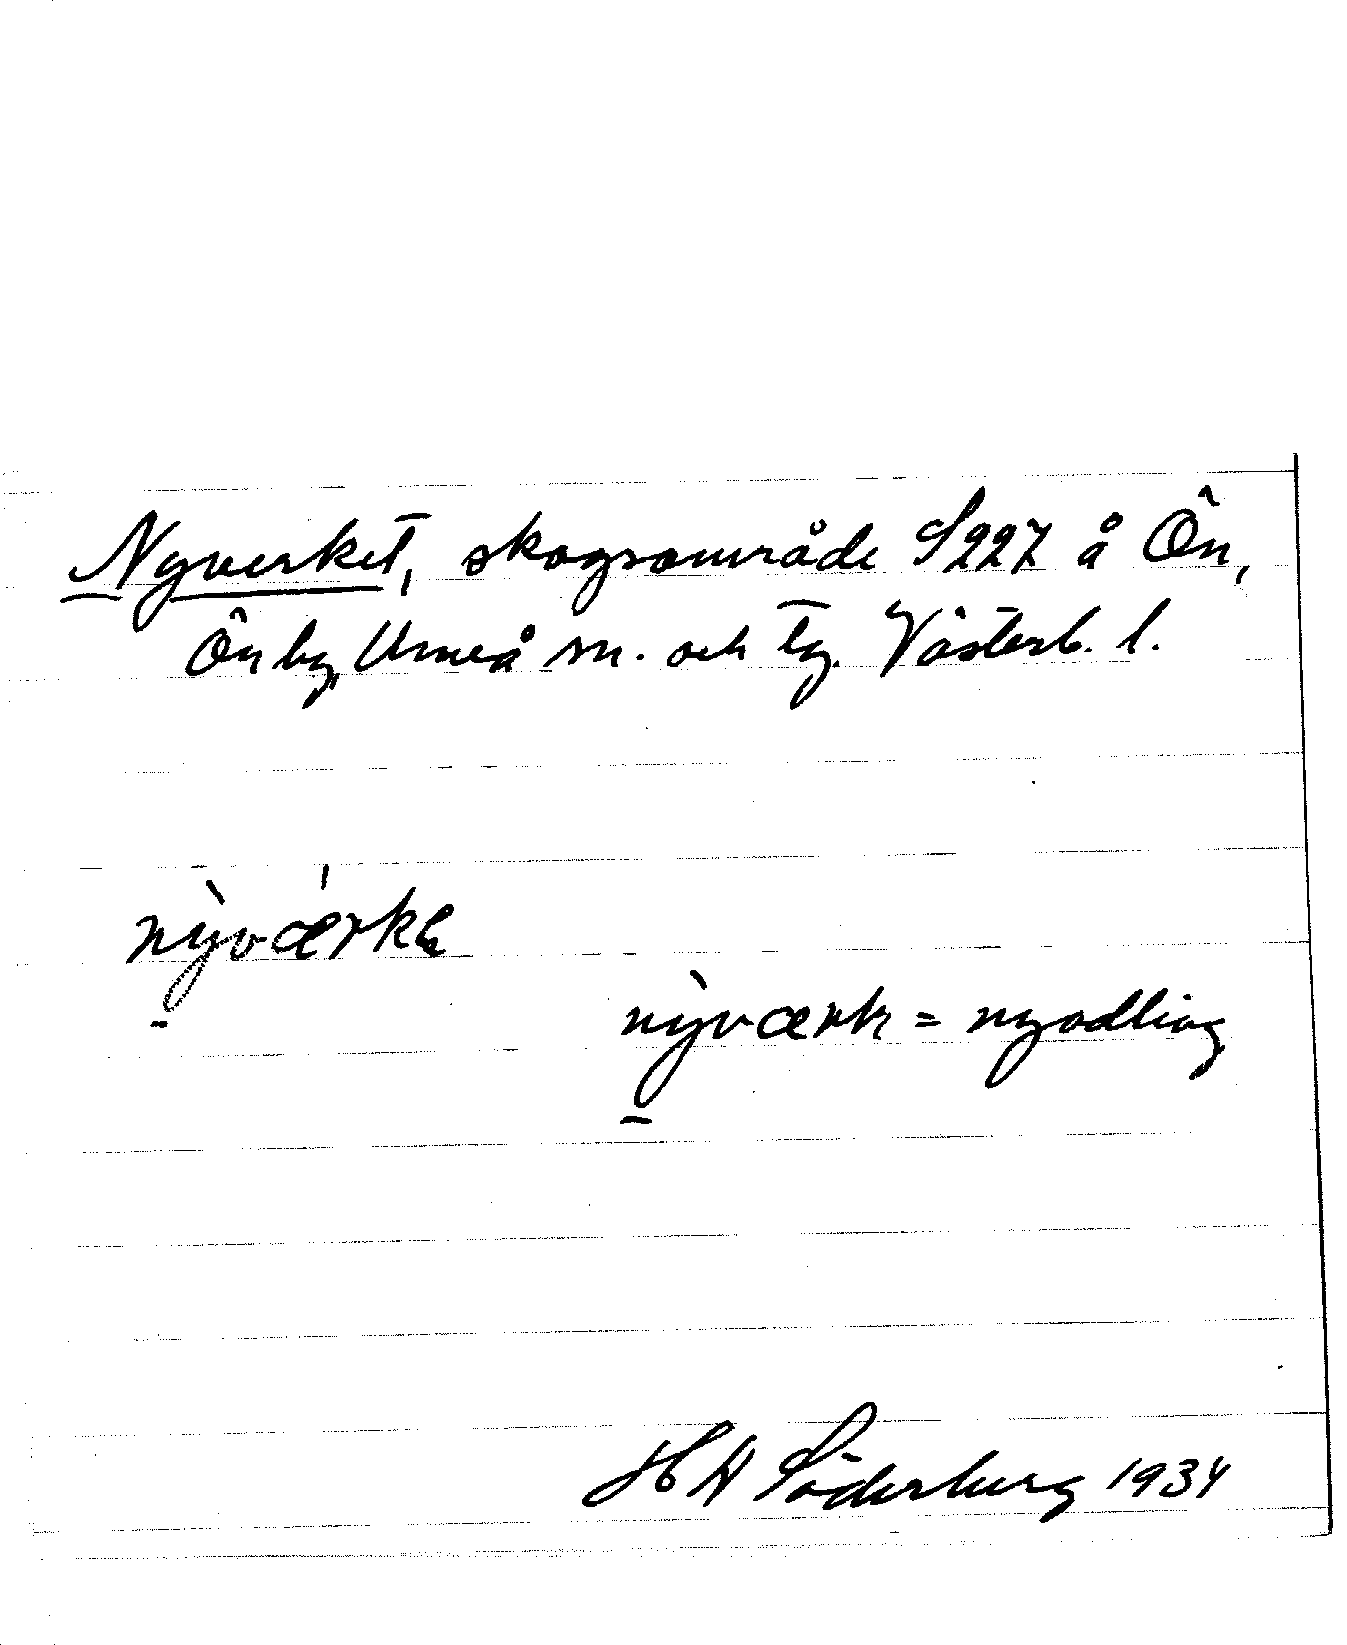 Nyverket, skogsområde S227 å Ön,
Ön by, Umeå sn. och tg. Västerb. l.
nỳvǽrkɐ
nỳværk = nyodling
H W Söderberg 1934